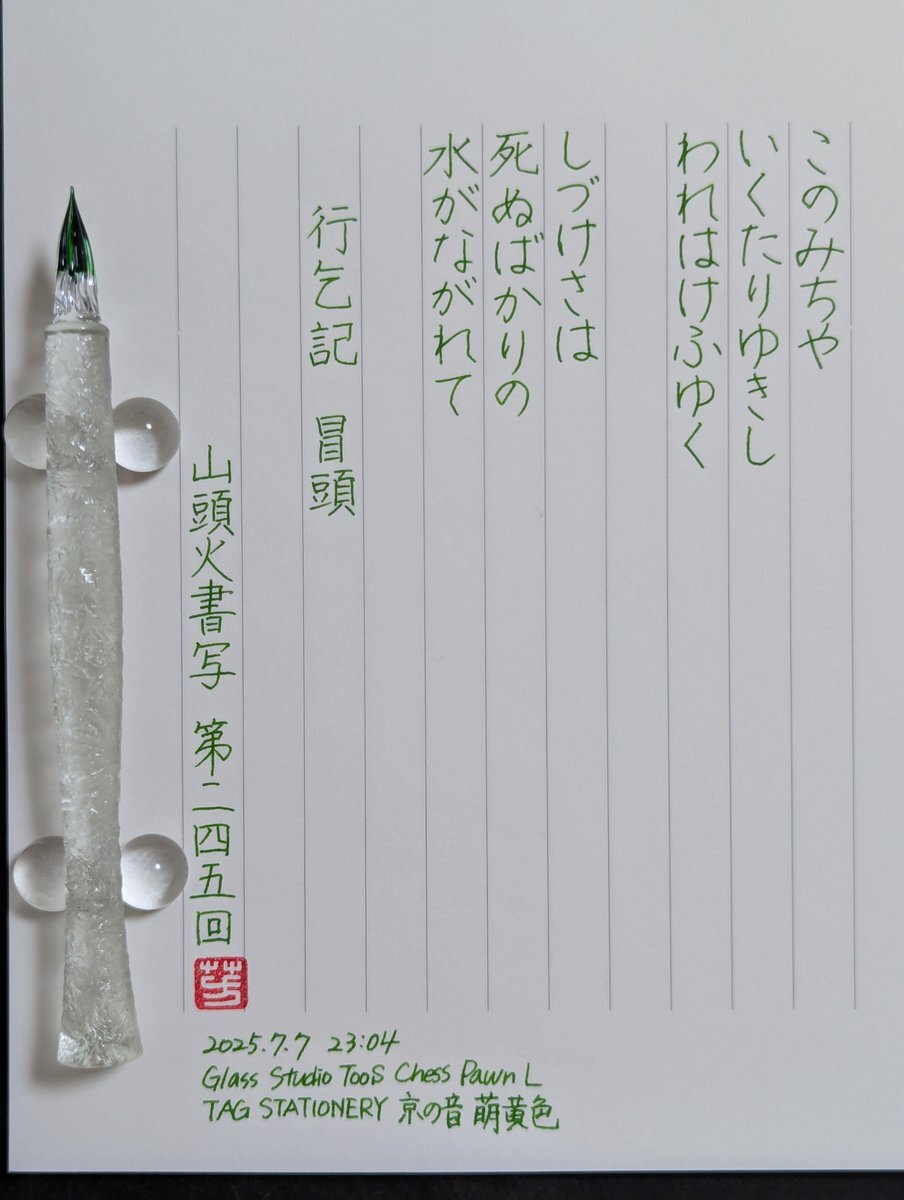 このみちや
いくたりゆきし
われはけふゆく
しづけさは
死ぬばかりの
水がながれて
行乞記　冒頭
山頭火書写　第二四五回
2025.7.7 23:04
Glass Studio TooS Chess Pawn L
TAG STATIONERY 京の音 萌黄色